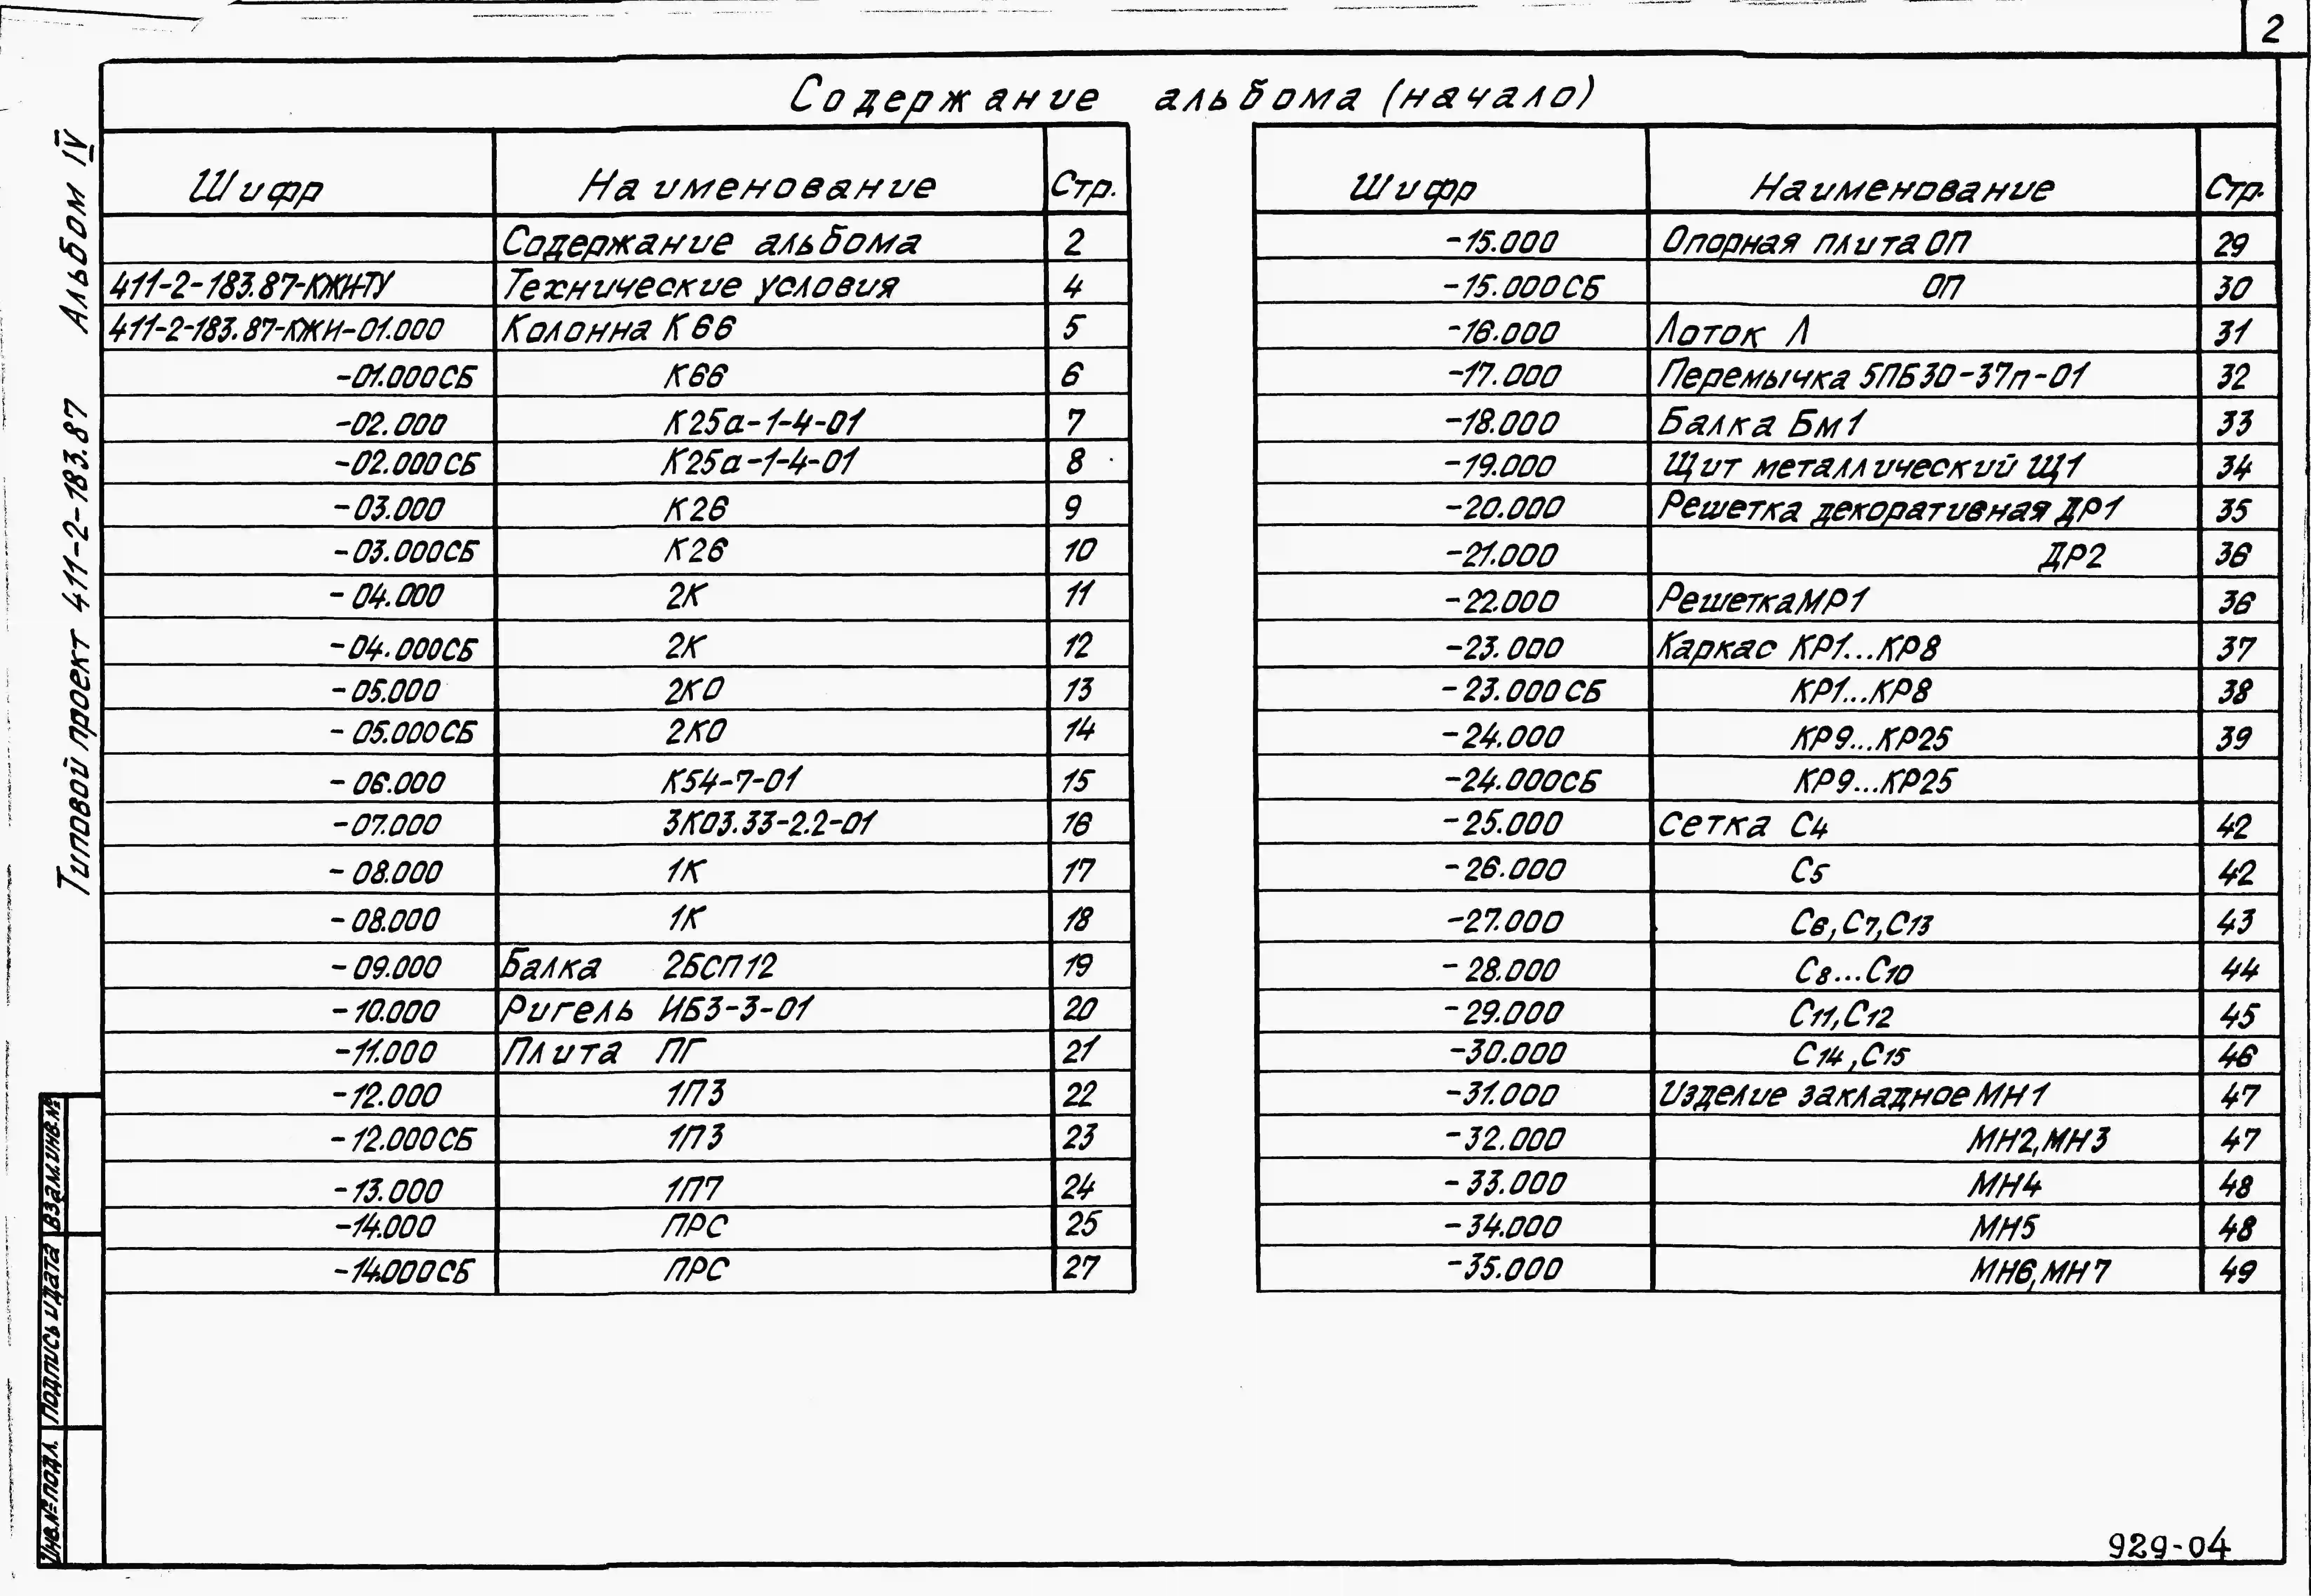 2
Содержание альбома (начало)
Типовой проект 411-2-183.87 Альбом IV
Шифр Наименование Стр.
Содержание альбома 2
411-2-183.87-КЖИ-ТУ Технические условия 4
411-2-183.87-КЖИ-01.000 Колонна К66 5
-01.000СБ К66 6
-02.000 К25а-1-4-01 7
-02.000СБ К25а-1-4-01 8
-03.000 К26 9
-03.000СБ К26 10
-04.000 2К 11
-04.000СБ 2К 12
-05.000 2КО 13
-05.000СБ 2КО 14
-06.000 К54-7-01 15
-07.000 3К03.33-2.2-01 16
-08.000 1К 17
-08.000 1К 18
-09.000 Балка 2БСП12 19
-10.000 Ригель ИБ3-3-01 20
-11.000 Плита ПГ 21
-12.000 1П3 22
-12.000СБ 1П3 23
-13.000 1П7 24
-14.000 ПРС 25
-14.000СБ ПРС 27
Шифр Наименование Стр.
-15.000 Опорная плита ОП 29
-15.000СБ ОП 30
-16.000 Лоток Л 31
-17.000 Перемычка 5ПБ30-37п-01 32
-18.000 Балка Бм1 33
-19.000 Щит металлический Щ1 34
-20.000 Решетка декоративная ДР1 35
-21.000 ДР2 36
-22.000 Решетка МР1 36
-23.000 Каркас КР1...КР8 37
-23.000СБ КР1...КР8 38
-24.000 КР9...КР25 39
-24.000СБ КР9...КР25
-25.000 сетка С4 42
-26.000 С5 42
-27.000 С6,С7,С13 43
-28.000 С8...С10 44
-29.000 С11,С12 45
-30.000 С14,С15 46
-31.000 Изделие закладное МН1 47
-32.000 МН2,МН3 47
-33.000 МН4 48
-34.000 МН5 48
-35.000 МН6,МН7 49
Инв.№подл. Подпись и дата Взам.инв.№
929-04